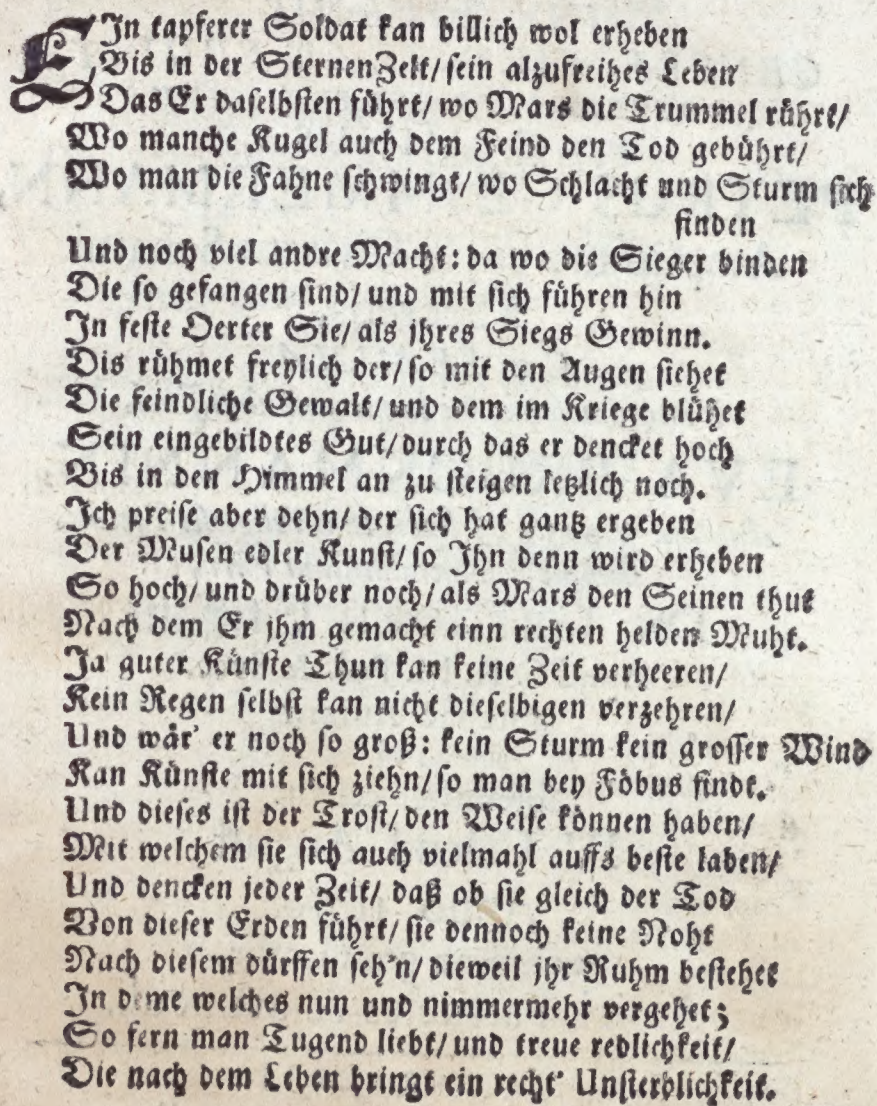 EIn tapferer Soldat kan billich wol erheben
Bis in der SternenZelt/ sein alzufreihes Leben
Das Er daselbsten führt/ wo Mars die Trummel rührt/
Wo manche Kugel auch dem Feind den Tod gebührt/
Wo man die Fahne schwingt/ wo Schlacht und Sturm sich
finden
Und noch viel andre Macht: da wo die Sieger binden
Die so gefangen sind/ und mit sich führen hin
In feste Oerter Sie/ als jhres Siegs Gewinn.
Dis rühmet freylich der/ so mit den Augen siehet
Die feindliche Gewalt/ und dem im Kriege blühet
Sein eingebildtes Gut/ durch das er dencket hoch
Bis in den Himmel an zu steigen letzlich noch.
Ich preise aber dehn/ der sich hat gantz ergeben
Der Musen edler Kunst/ so Ihn denn wird erheben
So hoch/ und drüber noch/ als Mars den Seinen thut
Nach dem Er jhm gemacht einn rechten helden Muht.
Ja guter Künste Thun kan keine Zeit verheeren/
Kein Regen selbst kan nicht dieselbigen verzehren/
Und wär' er noch so groß: kein Sturm kein grosser Wind
Kan Künste mit sich ziehn/ so man bey Föbus findt.
Und dieses ist der Trost/ den Weise können haben/
Mit welchem sie sich auch vielmahl auffs beste laben/
Und dencken jeder Zeit/ daß ob sie gleich der Tod
Von dieser Erden führt/ sie dennoch keine Noht
Nach diesem dürffen seh'n/ dieweil jhr Ruhm bestehet
In deme welches nun und nimmermehr vergehet;
So fern man Tugend liebt/ und treue redlichkeit/
Die nach dem Leben bringt ein recht' Unsterblichkeit.